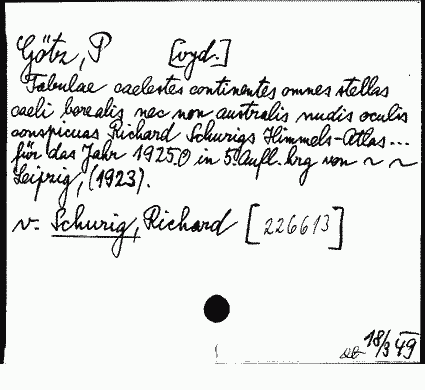 Götz, P [vyd.]
Tabulae caelestes continentes omnes stellas
caeli borealis nec non australis nudis oculis
conspicuas Richard Schurigs Himmels-Atlas...
für das Jahr 1925.0 in 5. Aufl. hrg von ~ ~
Leipzig, (1923).
v. Schurig, Richard [226613]
18/3 49